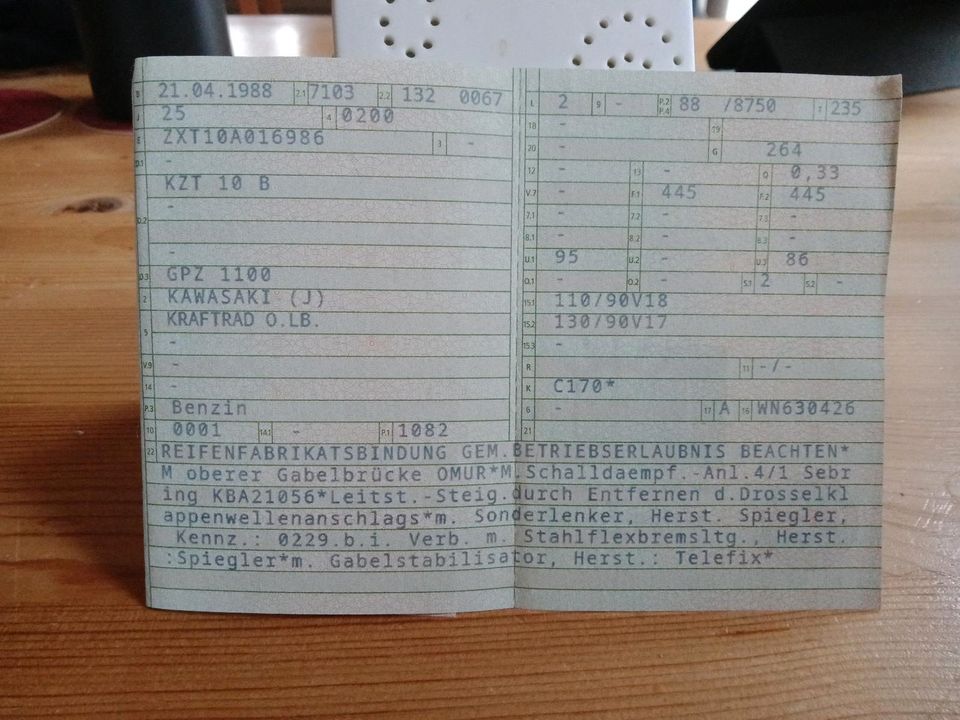 B 21.04.1988 2.1 7103 2.2 132 0067
J 25 4 0200
E ZXT10A016986 3 -
D.1 -
KZT 10 B
D.2 -
-
D.3 GPZ 1100
2 KAWASAKI (J)
5 KRAFTRAD O.LB.
-
V.9 -
14 -
P.3 Benzin
10 0001 14.1 - P.1 1082
L 2 9 - P.2 P.4 88 /8750 T 235
18 - 19
20 - G 264
12 - 13 - Q 0,33
V.7 - F.1 445 F.2 445
7.1 - 7.2 - 7.3 -
8.1 - 8.2 - 8.3 -
U.1 95 U.2 - U.3 86
O.1 - O.2 - S.1 2 S.2 -
15.1 110/90V18
15.2 130/90V17
15.3 -
R 11 -/-
K C170*
6 - 17 A 16 WN630426
21
22 REIFENFABRIKATSBINDUNG GEM.BETRIEBSERLAUBNIS BEACHTEN*
M oberer Gabelbrücke OMUR*M.Schalldaempf.-Anl.4/1 Sebr
ing KBA21056*Leitst.-Steig.durch Entfernen d.Drosselkl
appenwellenanschlags*m. Sonderlenker, Herst. Spiegler,
Kennz.: 0229.b.i. Verb. m. Stahlflexbremsltg., Herst.
:Spiegler*m. Gabelstabilisator, Herst.: Telefix*